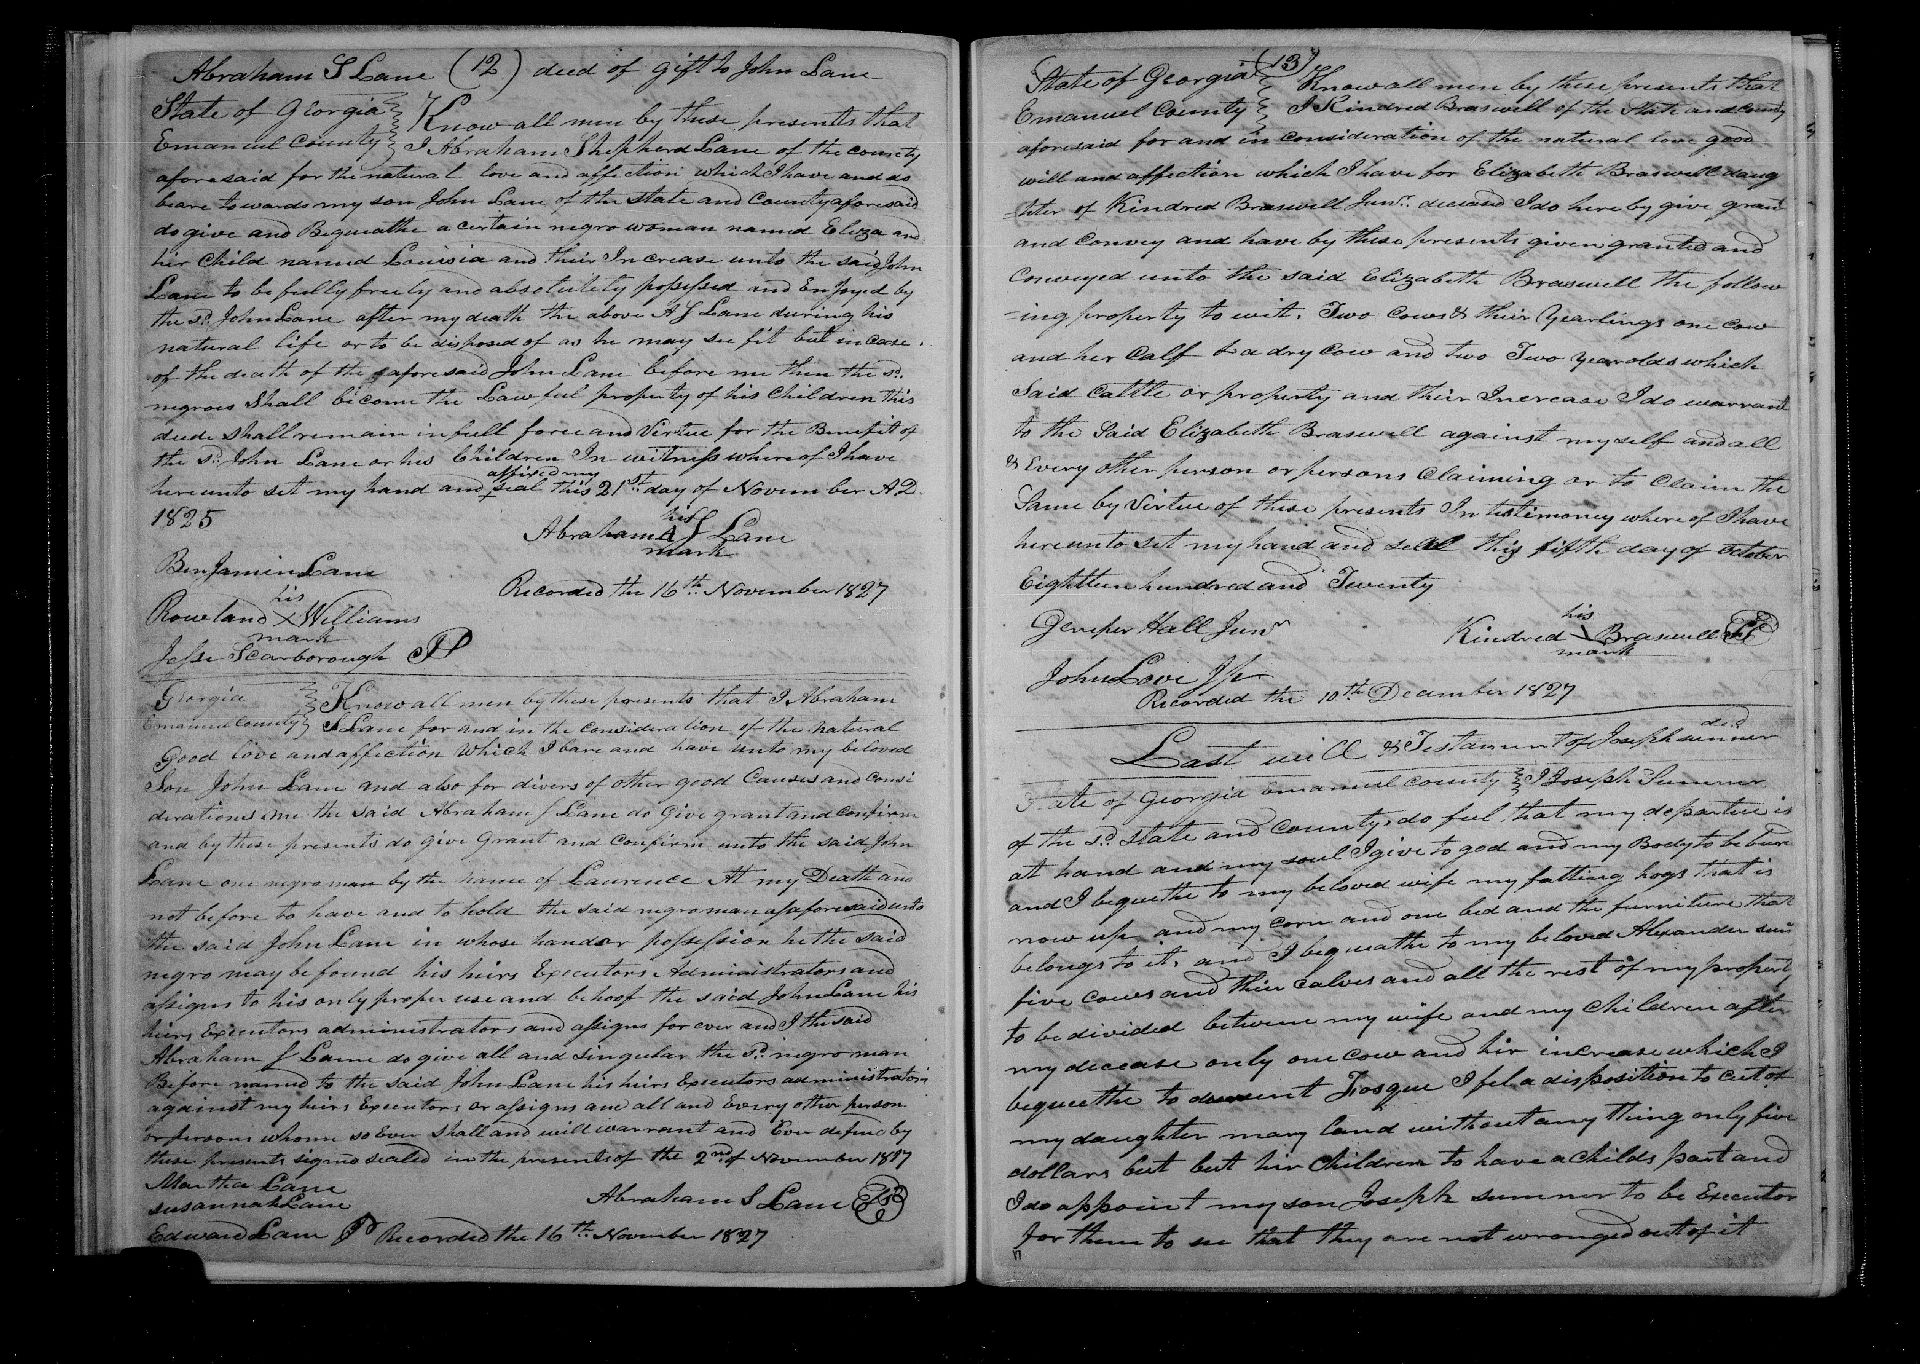 Abraham S Lane (12) deed of gift to John Lane
State of Georgia
Emanuel County
Know all men by these presents that
I Abraham Shepherd Lane of the county
aforesaid for the natural love and affection which I have and do
beare towards my son John Lane of the state and County aforesaid
do give and Bequeathe a certain negro woman named Eliza and
her child named Louisia and their Increase unto the said John
Lane to be fully freely and absolutely possessed and Enjoyed by
the sd. John Lane after my death the above A S Lane during his
natural life or to be disposed of as he may see fit but in case
of the death of the aforesaid John Lane before me then the sd.
negroes Shall become the Lawful property of his Children this
deede shall remain in full force and Virtue for the Benefit of
the sd. John Lane or his Children In witness where of I have
hereunto set my hand and affixed my seal this 21st day of November AD.
1825
Abraham S Lane
his
mark
Benjamin Lane
Recorded the 16th. November 1827
his
Rowland X Williams
mark
Jesse Scarborough JP
Georgia
Emanuel County
Know all men by these presents that I Abraham
S Lane for and in the consideration of the natural
Good love and affection which I bare and have unto my beloved
Son John Lane and also for divers of other good Causes and Consi
derations me the said Abraham S Lane do Give grant and confirm
and by these presents do Give Grant and Confirm unto the said John
Lane one negro man by the name of Laurence At my Death and
not before to have and to hold the said negro man as aforesaid unto
the said John Lane in whose hands or possession he the said
negro may be found his heirs Executors Administrators and
assigns to his only proper use and behoof the said John Lane his
heirs Executors administrators and assigns for ever and I the said
Abraham S Lane do give all and singular the sd. negro man
Before named to the said John Lane his heirs Executors administrators
against my heirs Executors or assigns and all and Every other person
or persons whome so Ever shall and will warrant and Ever defend by
these presents signed sealed in the presents of the 2nd of November 1817
Martha Lane
Susannah Lane
Abraham S Lane
Edward Lane JP Recorded the 16th. November 1827
(13)
State of Georgia
Emanuel County
Know all men by these presents that
I Kindred Braswell of the State and County
aforesaid for and in consideration of the natural love good
will and affection which I have for Elizabeth Braswell daug
-hter of Kindred Braswell Junr. deceasd I do here by give grant
and convey and have by these presents given granted and
Conveyed unto the said Elizabeth Braswell the follow
-ing property to wit. Two Cows & their Yearlings one cow
and her Calf & a dry Cow and two Two year olds which
Said Cattle or property and their Increase I do warrant
to the Said Elizabeth Braswell against myself and all
& Every other person or persons Claiming or to Claim the
Same by Virtue of these presents In testimoney where of I have
hereunto set my hand and seal this fifth day of October
Eighteen hundred and Twenty
Hall Junr
his
Kindred X Braswell
mark
John Love
Recorded the 10th December 1827
Last will & Testament of Joseph sumner decd
State of Georgia Emanuel County I Joseph Sumner
of the sd. State and County do feel that my departure is
at hand and my soul I give to god and my Body to be bure
and I bequethe to my beloved wife my fatting hogs that is
now up and my corn and one bed and the furniture that
belongs to it. and I bequeathe to my beloved Alexander
five cows and their calves and all the rest of my property
to be divided between my wife and my children after
my decease only one cow and hir increase which I
bequethe to I fel a disposition to cut of
my daughter mary land without any thing only five
dollars but but hir children to have a childs part and
I do appoint my son Joseph sumner to be Executor
for them to see that they are not wronged out of it